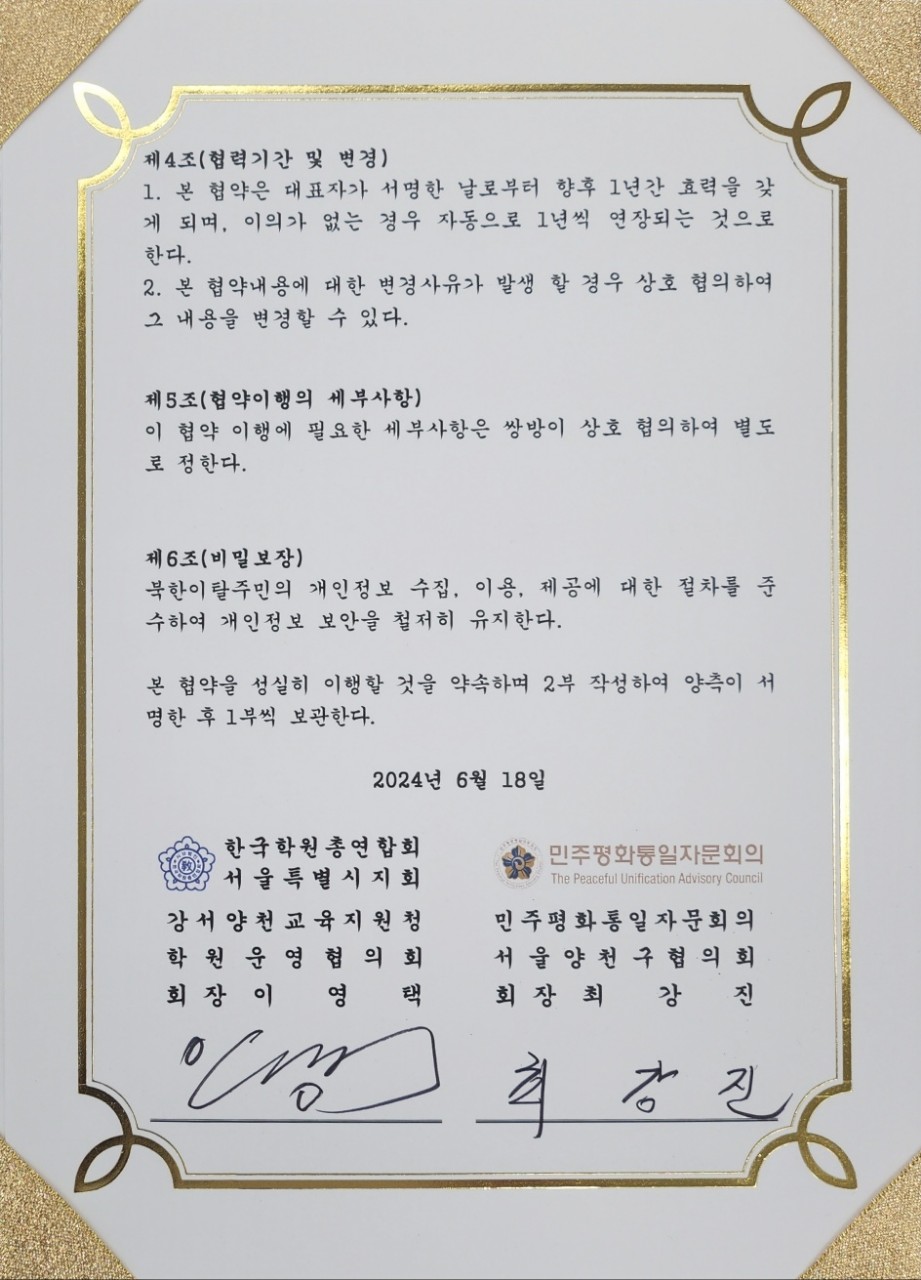 제4조(협력기간 및 변경)
1. 본 협약은 대표자가 서명한 날로부터 향후 1년간 효력을 갖
게 되며, 이의가 없는 경우 자동으로 1년씩 연장되는 것으로
한다.
2. 본 협약내용에 대한 변경사유가 발생 할 경우 상호 협의하여
그 내용을 변경할 수 있다.
제5조(협약이행의 세부사항)
이 협약 이행에 필요한 세부사항은 쌍방이 상호 협의하여 별도
로 정한다.
제6조(비밀보장)
북한이탈주민의 개인정보 수집, 이용, 제공에 대한 절차를 준
수하여 개인정보 보안을 철저히 유지한다.
본 협약을 성실히 이행할 것을 약속하며 2부 작성하여 양측이 서
명한 후 1부씩 보관한다.
2024년 6월 18일
한국학원총연합회
서울특별시지회
강서양천교육지원청
학원운영협의회
회장 이 영 택
敎
민주평화통일자문회의
The Peaceful Unification Advisory Council
민주평화통일자문회의
서울양천구협의회
회장 최 강 진
최 강 진